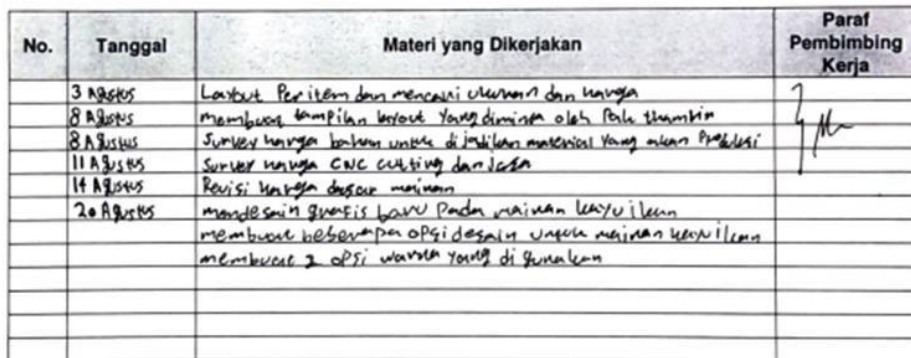 No. Tanggal Materi yang Dikerjakan Paraf Pembimbing Kerja
3 Agustus Layout Per item dan mencari ukuran dan harga
8 Agustus membuat tampilan layout Yang diminta oleh Pak thamrin
8 Agustus Survey harga bahan untuk di jadikan material Yang akan Produksi
11 Agustus Survey harga CNC cutting dan Jasa
14 Agustus Revisi harga dasar mainan
20 Agustus mendesain grafis baru Pada mainan kayu ikan
membuat beberapa opsi desain untuk mainan kayu ikan
membuat 2 opsi warna Yang di gunakan